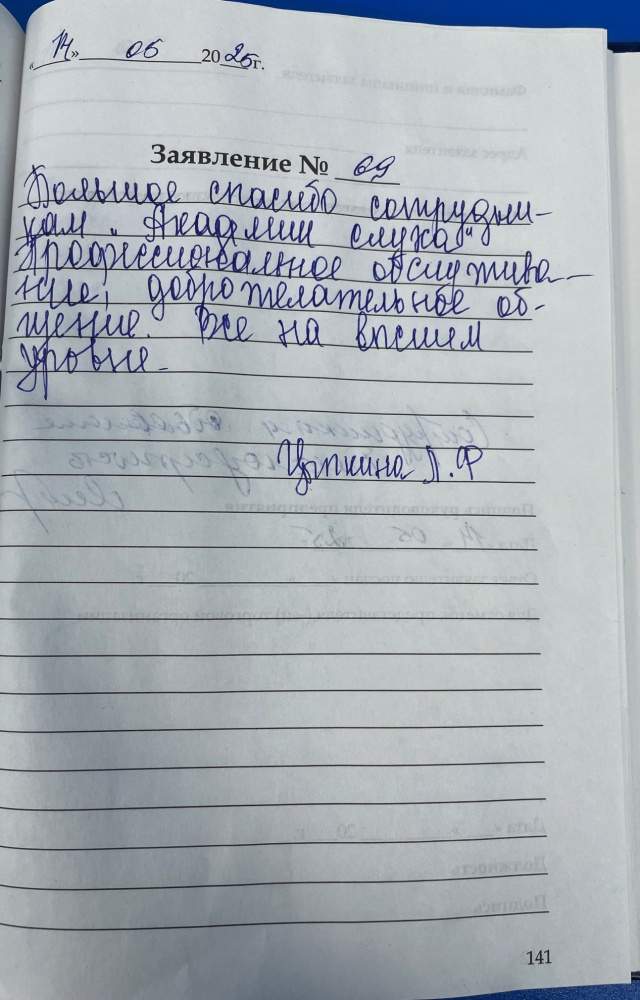 «14» 05 2025г.
Заявление № 69
Большое спасибо сотрудни-
кам „Академии слуха"
Профессиональное обслужива-
ние, доброжелательное об-
щение. Все на высшем
уровне.
Цыпкина Л.Ф
141